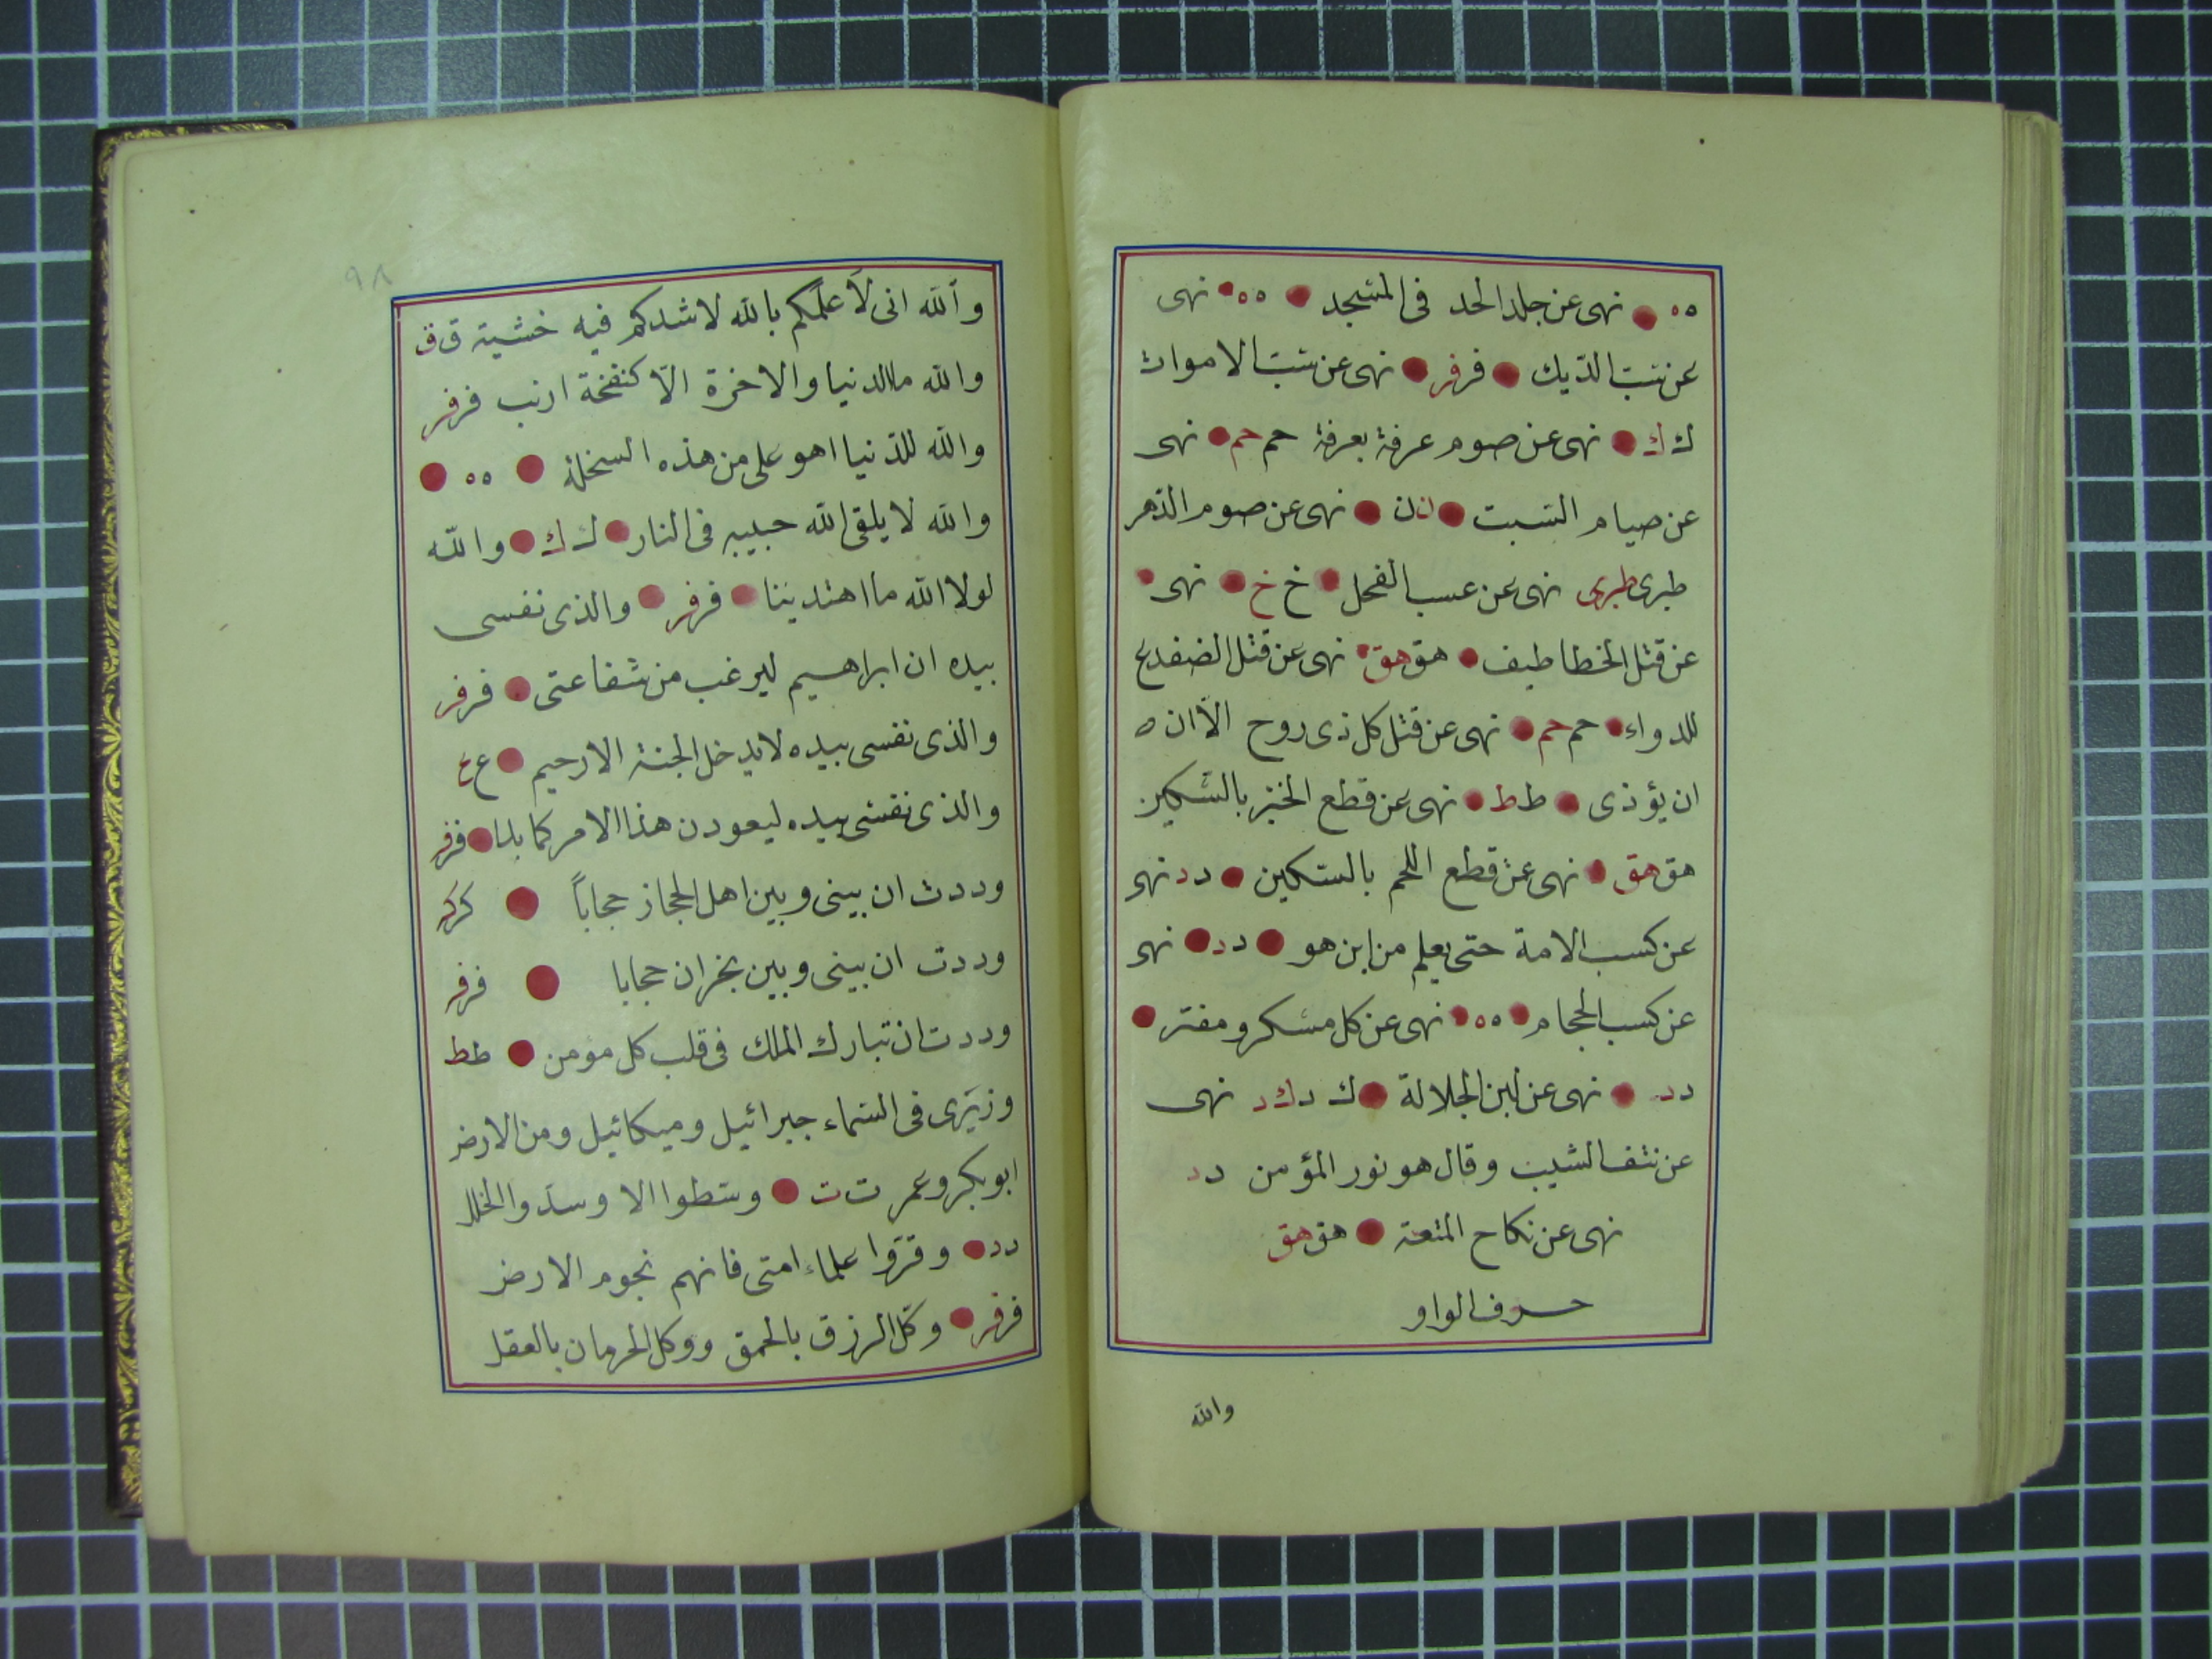 ه ه نهى عن جلد الحد فى المسجد ه ه نهى
عن سب الديك فر فر نهى عن سب الاموات
ك ك نهى عن صوم عرفة بعرفة حم حم نهى
عن صيام السبت ن ن نهى عن صوم الدهر
طبرى طبرى نهى عن عسب الفحل خ خ نهى
عن قتل الخطاطيف هق هق نهى عن قتل الضفدع
للدواء حم حم نهى عن قتل كل ذى روح الّا ان ه
ان يؤذى ط ط نهى عن قطع الخبز بالسّكين
هق هق نهى عن قطع اللحم بالسكين د د نهى
عن كسب الامة حتى يعلم من اين هو د د نهى
عن كسب الحجام ه ه نهى عن كل مسكر ومفتر
د د نهى عن لبن الجلالة ك د ك د نهى
عن نتف الشيب وقال هو نور المؤمن د د
نهى عن نكاح المتعة هق هق
حرف الواو
والله
٩٨
والله انى لاَعلمكم بالله لاشدكم فيه خشية ق ق
والله ما الدنيا والاخرة الّا كنفخة ارنب فر فر
والله للدّنيا اهو على من هذه السخلة ه ه
والله لا يلقى الله حبيبه فى النار ك ك والله
لولا الله ما اهتدينا فر فر والذى نفسى
بيده ان ابراهيم ليرغب من شفاعتى فر فر
والذى نفسى بيده لا يدخل الجنة الا رحيم ع ع
والذى نفسى بيده ليعودن هذا الامر كما بدا فر فر
وددت ان بينى وبين اهل الحجاز حجاباً كر كر
وددت ان بينى وبين نجران حجابا فر فر
وددت ان تبارك الملك فى قلب كل مؤمن ط ط
وزيرَى فى السماء جبرائيل وميكائيل ومن الارض
ابو بكر وعمر ت ت وسطوا الا وسدّوا الخلل
د د وقرّوا علماء امتى فانهم نجوم الارض
فر فر وكّل الرزق بالحمق ووكل الحرمان بالعقل